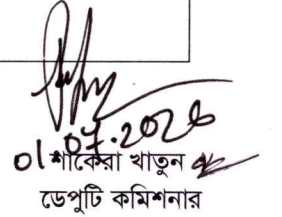 01.07.2026
শাকেরা খাতুন
ডেপুটি কমিশনার